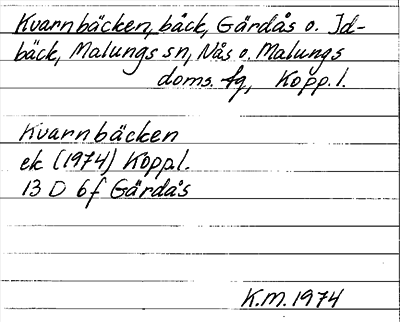 Kvarnbäcken, bäck, Gärdås o. Id-
bäck, Malungs sn, Nås o. Malungs
doms. fg, Kopp. l.
Kvarnbäcken
ek (1974) Koppl.
13 D 6f Gärdås
K.M. 1974